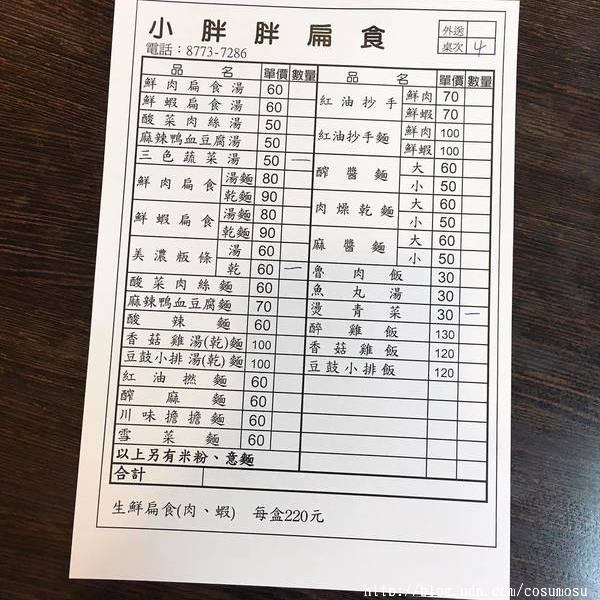 小胖胖扁食
外送
電話：8773-7286
桌次 4
品名 單價 數量
鮮肉扁食湯 60
鮮蝦扁食湯 60
酸菜肉絲湯 50
麻辣鴨血豆腐湯 50
三色蔬菜湯 50 一
鮮肉扁食 湯麵 80
乾麵 90
鮮蝦扁食 湯麵 80
乾麵 90
美濃粄條 湯 60
乾 60 一
酸菜肉絲麵 60
麻辣鴨血豆腐麵 70
酸辣麵 60
香菇雞湯(乾)麵 100
豆鼓小排湯(乾)麵 100
紅油撚麵 60
醡麻麵 60
川味擔擔麵 60
雪菜麵 60
以上另有米粉、意麵
合計
品名 單價 數量
紅油抄手 鮮肉 70
鮮蝦 70
紅油抄手麵 鮮肉 100
鮮蝦 100
醡醬麵 大 60
小 50
肉燥乾麵 大 60
小 50
麻醬麵 大 60
小 50
魯肉飯 30
魚丸湯 30
燙青菜 30 一
醉雞飯 130
香菇雞飯 120
豆鼓小排飯 120
生鮮扁食(肉、蝦) 每盒220元
http://blog.udn.com/cosumosu